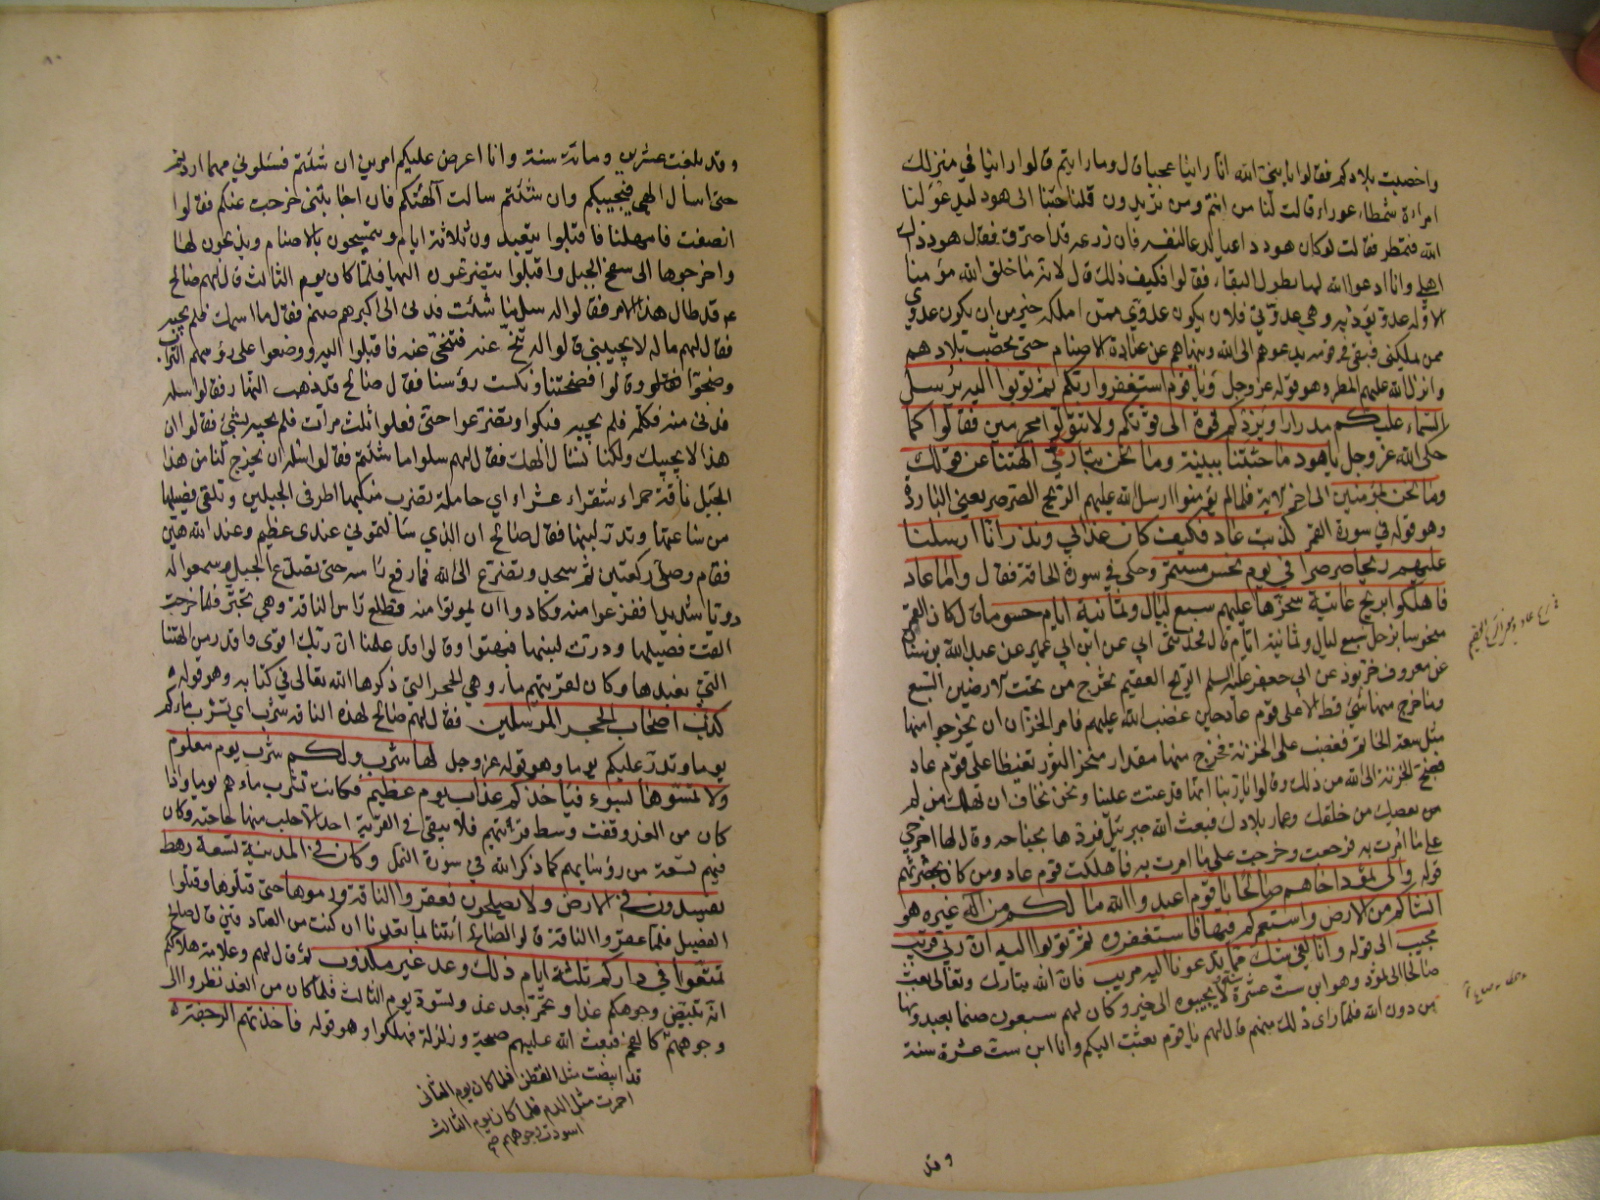 واخصبت بلادكم فقالوا يا نبي الله انا راينا عجبا قال وما رايتم قالوا راينا في منزلك
امراة شمطاء عوراء قالت لنا من انتم ومن تريدون قلنا جئنا الى هود ليدعو لنا
الله فنمطر فقالت لو كان هود داعيا لدعا لنفسه فان زرعه قد احترق فقال هود ذاك
اهلي وانا ادعوا الله لها بطول البقاء فقالوا فكيف ذلك قال لانه ما خلق الله مؤمنا
الا وله عدو يؤذيه وهي عدوتي فلان يكون عدوي ممن املكه خير من ان يكون عدوي
ممن يملكني فبقي في قومه يدعوهم الى الله وينهاهم عن عبادة الاصنام حتى تخصب بلادهم
وانزل الله عليهم المطر وهو قوله عز وجل ويا قوم استغفروا ربكم ثم توبوا اليه يرسل
السماء عليكم مدرارا ويزدكم قوة الى قوتكم ولا تتولوا مجرمين فقالوا كما
حكى الله عز وجل يا هود ما جئتنا ببينة وما نحن بتاركي آلهتنا عن قولك
وما نحن لك بمؤمنين الى اخر الاية فلما لم يؤمنوا ارسل الله عليهم الريح الصرصر يعني الباردة
وهو قوله في سورة القمر كذبت عاد فكيف كان عذابي ونذر انا ارسلنا
عليهم ريحا صرصرا في يوم نحس مستمر وحكى في سورة الحاقة فقال واما عاد
فاهلكوا بريح عاتية سخرها عليهم سبع ليال وثمانية ايام حسوما قال كان القمر
منحوسا بزحل سبع ليال وثمانية ايام قال فحدثني ابي عن ابن ابي عمير عن عبد الله بن سنان
عن معروف بن خربوذ عن ابي جعفر عليه السلم الريح العقيم تخرج من تحت الارضين السبع
وما خرج منها شئ قط الا على قوم عاد حين غضب الله عليهم فامر الخزان ان يخرجوا منها
مثل سعة الخاتم فعصت على الخزنة فخرج منها مقدار منخر الثور تغيظا على قوم عاد
فضج الخزنة الى الله من ذلك وقالوا يا ربنا انها قد عتت علينا ونحن نخاف ان تهلك من لم
من يعصيك من خلقك وعمار بلادك فبعث الله جبرئيل فردها بجناحه وقال لها اخرجي
على ما امرت به فرجعت وخرجت على ما امرت به فاهلكت قوم عاد ومن كان بحضرتهم
قوله والى ثمود اخاهم صالحا يا قوم اعبدوا الله ما لكم من اله غيره هو
انشاكم من الارض واستعمركم فيها فاستغفروه ثم توبوا اليه ان ربي قريب
مجيب الى قوله واننا لفي شك مما تدعونا اليه مريب فان الله تبارك وتعالى بعث
صالحا الى ثمود وهو ابن ست عشرة سنة لا يجيبوه الى خير وكان لهم سبعون صنما يعبدونها
من دون الله فلما راى ذلك منهم قال لهم يا قوم بعثت اليكم وانا ابن ست عشرة سنة
وقد
وقد بلغت عشرين ومائة سنة وانا اعرض عليكم امرين ان شئتم فسئلوني مهما اردتم
حتى اسال الهي فيجيبكم وان شئتم سالت آلهتكم فان اجابتني خرجت عنكم فقالوا
انصفت فامهلنا فاقبلوا يتعبدون ثلاثة ايام ويتمسحون بالاصنام ويذبحون لها
واخرجوها الى سفح الجبل واقبلوا يتضرعون اليها فلما كان يوم الثالث قال لهم صالح
قد طال هذا الامر فقالوا له سل ما شئت فدنى الى اكبرهم صنم فقال ما اسمك فلم يجبه
فقال لهم ما له لا يجيبني قالوا له تنح عنه فتنحى عنه فاقبلوا اليه ووضعوا على رؤسهم التراب
وضجوا وقالوا فضحتنا ونكست رؤسنا فقال صالح قد ذهب النهار فقالوا سله
فدنى منه فكلمه فلم يجبه فبكوا وتضرعوا حتى فعلوا ثلث مرات فلم يجبهم بشئ فقالوا ان
هذا لا يجيبك ولكنا نسال الهك فقال لهم سلوا ما شئتم فقالوا سله ان يخرج لنا من هذا
الجبل ناقة حمراء شقراء عشراء اي حاملة تضرب منكبيها طرفي الجبلين وتلقي فصيلها
من ساعتها وتدر لبنها فقال صالح ان الذي سالتموني عندي عظيم وعند الله هين
فقام وصلى ركعتين ثم سجد وتضرع الى الله فما رفع راسه حتى تصدع الجبل وسمعوا له
دويا شديدا ففزعوا منه وكادوا ان يموتوا منه فطلع راس الناقة وهي تجتر فلما خرجت
القت فصيلها ودرت لبنها فبهتوا وقالوا قد علمنا ان ربك اقوى واقدر من الهتنا
التي نعبدها وكان لقريتهم ماء وهي الحجر التي ذكرها الله تعالى في كتابه وهو قوله
كذب اصحاب الحجر المرسلين فقال لهم صالح لهذه الناقة شرب اي تشرب ماءكم
يوما وتدر عليكم يوما وهو قوله عز وجل لها شرب ولكم شرب يوم معلوم
ولا تمسوها بسوء فياخذكم عذاب يوم عظيم فكانت تشرب ماءهم يوما واذا
كان من الغد وقفت وسط قريتهم فلا يبقى في القرية احد الا حلب منها حاجته وكان
فيهم تسعة من رؤسائهم كما ذكر الله في سورة النمل وكان في المدينة تسعة رهط
يفسدون في الارض ولا يصلحون فعقروا الناقة ورموها حتى قتلوها وقتلوا
الفصيل فلما عقروا الناقة قالوا لصالح ائتنا بما تعدنا ان كنت من الصادقين قال صالح
تمتعوا في داركم ثلثة ايام ذلك وعد غير مكذوب ثم قال لهم وعلامة هلاككم
انه تبيض وجوهكم غدا وتحمر بعد غد وتسود يوم الثالث فلما كان من الغد نظروا الى
وجوههم كالعجز فبعث الله عليهم صيحة وزلزلة فهلكوا وهو قوله فاخذتهم الرجفة
قد ابيضت مثل القطن فلما كان يوم الثاني
احمرت مثل الدم فلما كان يوم الثالث
اسودت وجوههم صح